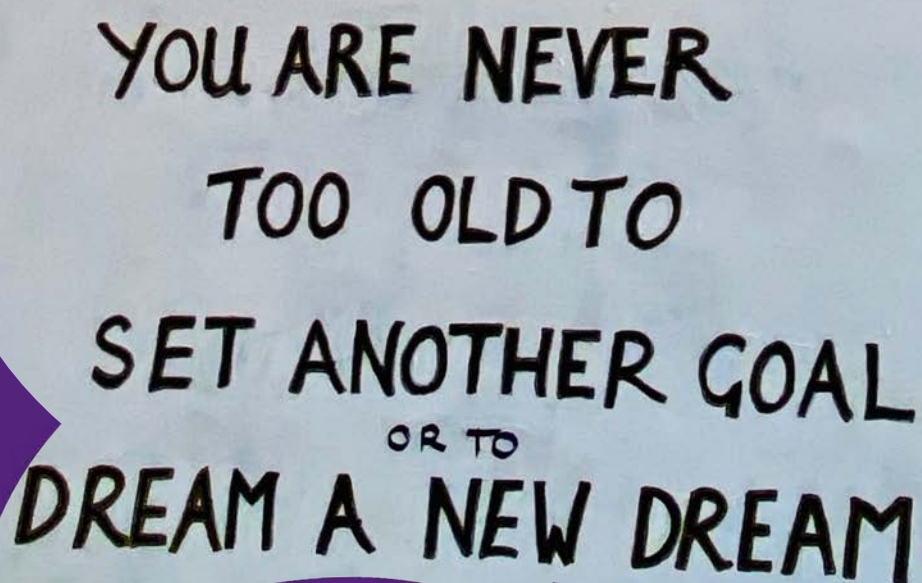 YOU ARE NEVER
TOO OLD TO
SET ANOTHER GOAL
OR TO
DREAM A NEW DREAM